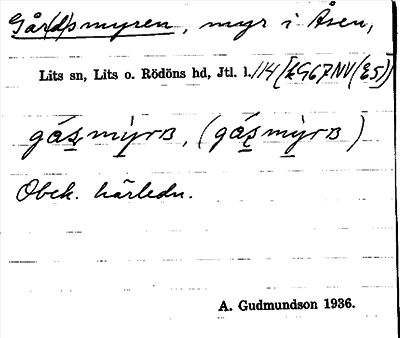 Går(d)smyren, myr i Åsen,
Lits sn, Lits o. Rödöns hd, Jtl. l. 114 [£G67NV(£5)]
gásmỳrɞ, (gásmỳrɞ)
Obek. härledn.
A. Gudmundson 1936.